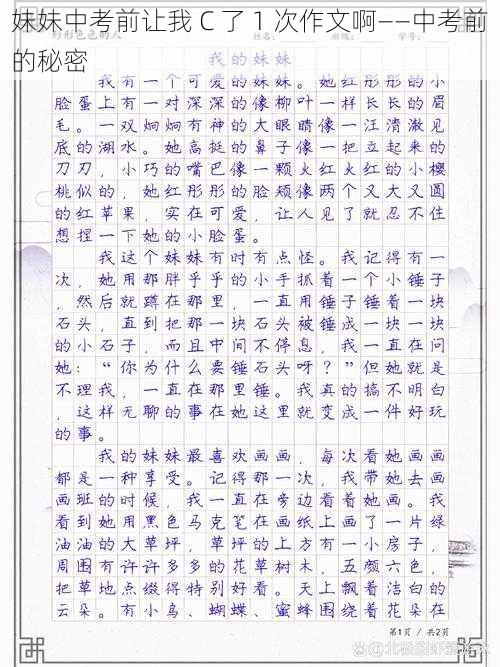 妹妹中考前让我 C 了 1 次作文啊——中考前
的秘密
形形色色的人
我的妹妹
我有一个可爱的妹妹。她红彤彤的小
脸蛋上有一对深深的像柳叶一样长长的眉
毛。一双炯炯有神的大眼睛像一汪清澈见
底的湖水。她高挺的鼻子像一把立起来的
刀刃,小巧的嘴巴像一颗火红火红的小樱
桃似的,她红彤彤的脸颊像两个又大又圆
的红苹果,实在可爱,让人见了就忍不住
想捏一下她的小脸蛋。
我这个妹妹有时有点怪。我记得有一
次,她用那胖乎乎的小手抓着一个小锤子
,然后就蹲在那里,一直用锤子锤着一块
石头,直到把那一块石头被锤成一块一块
的小石子,而且中间不停息,我一直在问
她:“你为什么要锤石头呀?”但她就是
不理我,一直在那里锤。我真的搞不明白
,这样无聊的事在她这里就变成一件好玩
的事。
我的妹妹最喜欢画画,每次看她画画
都是一种享受。记得那一次,我带她去画
画班的时候,我一直在旁边看着她画。我
看到她用黑色马克笔在画纸上画了一片绿
油油的大草坪,草坪的上方有一小房子,
周围有许许多多的花草树木,五颜六色,
把草地点缀得特别好看。天上飘着洁白的
云朵。有小鸟、蝴蝶、蜜蜂围绕着花朵在
第1页 / 共2页